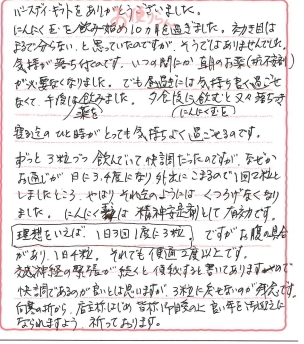 バースデイギフトをありがとうございました。
にんにく玉を飲み始め10ヵ月を過ぎました。効き目は
まるで分らない と思っていたのですが、そうではありませんでした。
気持が落ち付くのです。いつの間にか 目のお薬(抗不安剤)
が必要なくなりました。でも昼過ぎには気持ち良く過ごせ
なくて、午後は薬を飲みました。夕食後に飲むと又々落ちつき
にんにく玉を
寝る迄のひと時がとっても気持ちよく過ごせるのです。
ずっと3粒づつ飲んでいて快調だったのですが、なぜか
お通じが日に3.4度になり外出にこまるので1回2粒と
しましたところ、やはりそれ迄のようには くつろげなくなり
ました。にんにく 精神安定剤として有効です。
理想をいえば、1日3回1度に3粒 ですがお腹の具合
があり、1日4粒。それでも便通2度以上です。
交感神経の緊張が続くと便秘すると書いてありますので
快調であるのが良いとは思いますが、3粒にだせないのが残念です。
向寒の折から、店主様はじめ 皆様 良い年をお迎えに
なられますよう、祈っております。